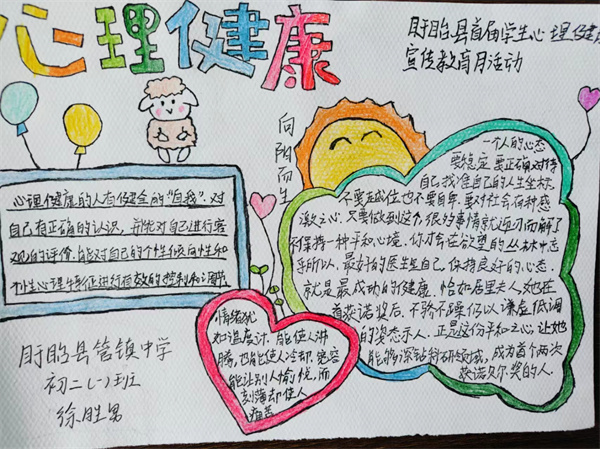 心理健康
盱眙县首届学生心理健康
宣传教育月活动
向阳而生
心理健康的人有健全的“自我”,对
自己有正确的认识,并能对自己进行客
观的评价.能对自己的个性倾向性和
个性心理特征进行有效的控制和调节
一个人的心态
要稳定,要正确对待
自己,找准自己的人生坐标,
不要越位也不要自卑.要对社会存种感
激之心.只要做到这个,很多事情就迎刃而解了
保持一种平和心境.你才会在欲望的丛林中忘
乎所以,最好的医生是自己,保持良好的心态.
就是最成功的健康.恰如居里夫人她在
首获诺奖后.不骄不躁仍以谦虚低调
的姿态示人.正是这份平和之心让她
能够深钻科研领域,成为首个两次
获诺尔奖的人.
情绪犹
如温度计.能使人沸
腾,也能使人冷却.宽容
能让别人愉悦,而
刻薄却使人
痛苦
盱眙县管镇中学
初二(一)班
徐胜男